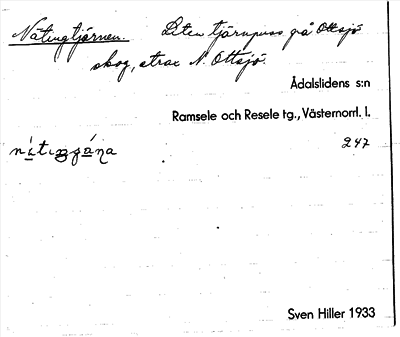 Nätingtjärnen. Liten tjärnpuss på Ottsjö
skog, strax N. Ottsjö.
Ådalslidens s:n
Ramsele och Resele tg., Västernorrl. l.
247
Sven Hiller 1933